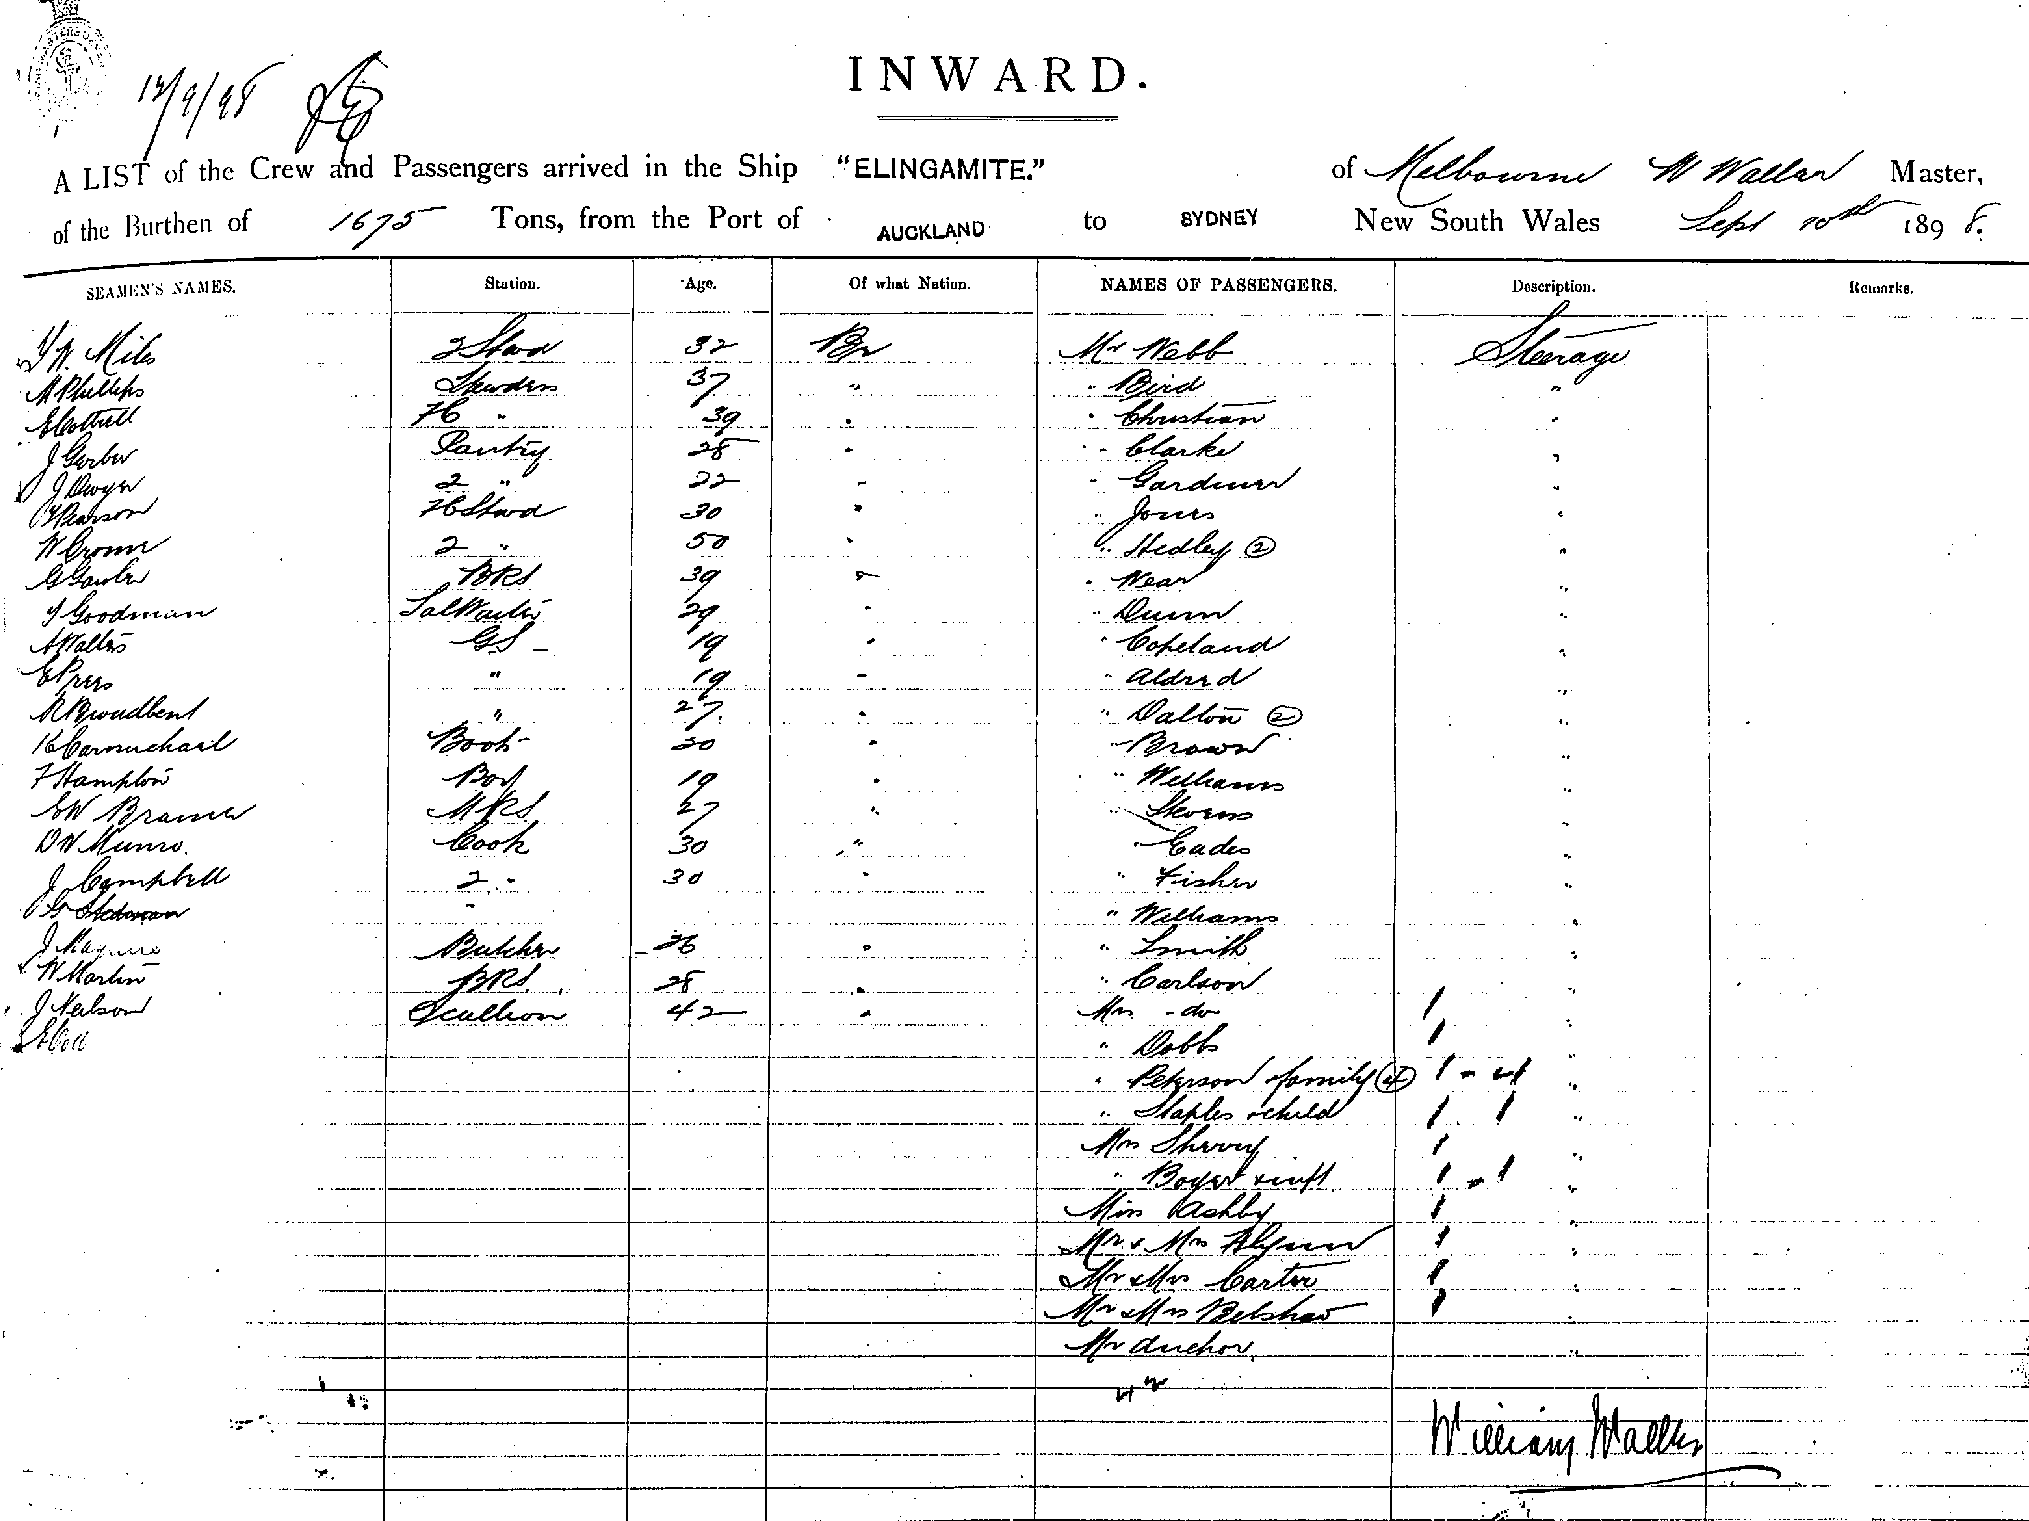 12/9/98
INWARD.
A LIST of the Crew and Passengers arrived in the Ship "ELINGAMITE." of Melbourne W Waller Master,
of the Burthen of 1675 Tons, from the Port of AUCKLAND to SYDNEY New South Wales Sept 10th 1898.
SEAMEN'S NAMES. Station. Age. Of what Nation. NAMES OF PASSENGERS. Description. Remarks.
W. Miles 2 Stwd 32 Br Mr Webb Steerage
Phillips Stewdess 37 " " Bird "
E Cottrell " 39 " " Christian "
J Gerber Pantry 28 " " Clarke "
J Dwyer 2 " 22 " " Gardiner "
Pearson Stwd 30 " " Jones "
W 2 " 50 " " Hedley (2) "
G Gawler BRS 39 " " Near "
Goodman Sal Waiter 29 " " Dunn "
A Walters GS 19 " " Copeland "
E Prees " 19 " " Aldred "
R Broadbent " 27 " " Dalton (2) "
Carmichael Books 20 " " Brown "
F Hampton Boy 19 " " Williams "
EW Bramer MRS 27 " "
D W Munro. Cook 30 " " Eades "
J Campbell 2 " 30 " " Fisher "
" " Williams "
J Maguire Butcher 26 " " Smith "
W Martin BRS. 28 " " Carlson "
J Neilson Scullion 42 " Mrs - do "
" Dobbs "
" Peterson family (4) 1 - 4 "
" Staples & child 1 1 "
Mrs Sherry 1 "
" Boyer & inft 1 - 1 "
Miss Ashby 1 "
Mr & Mrs Flynn 1 "
Mr & Mrs Carter 1 "
Mr & Mrs Belshaw 1 "
Mr Anchor. "
William Waller